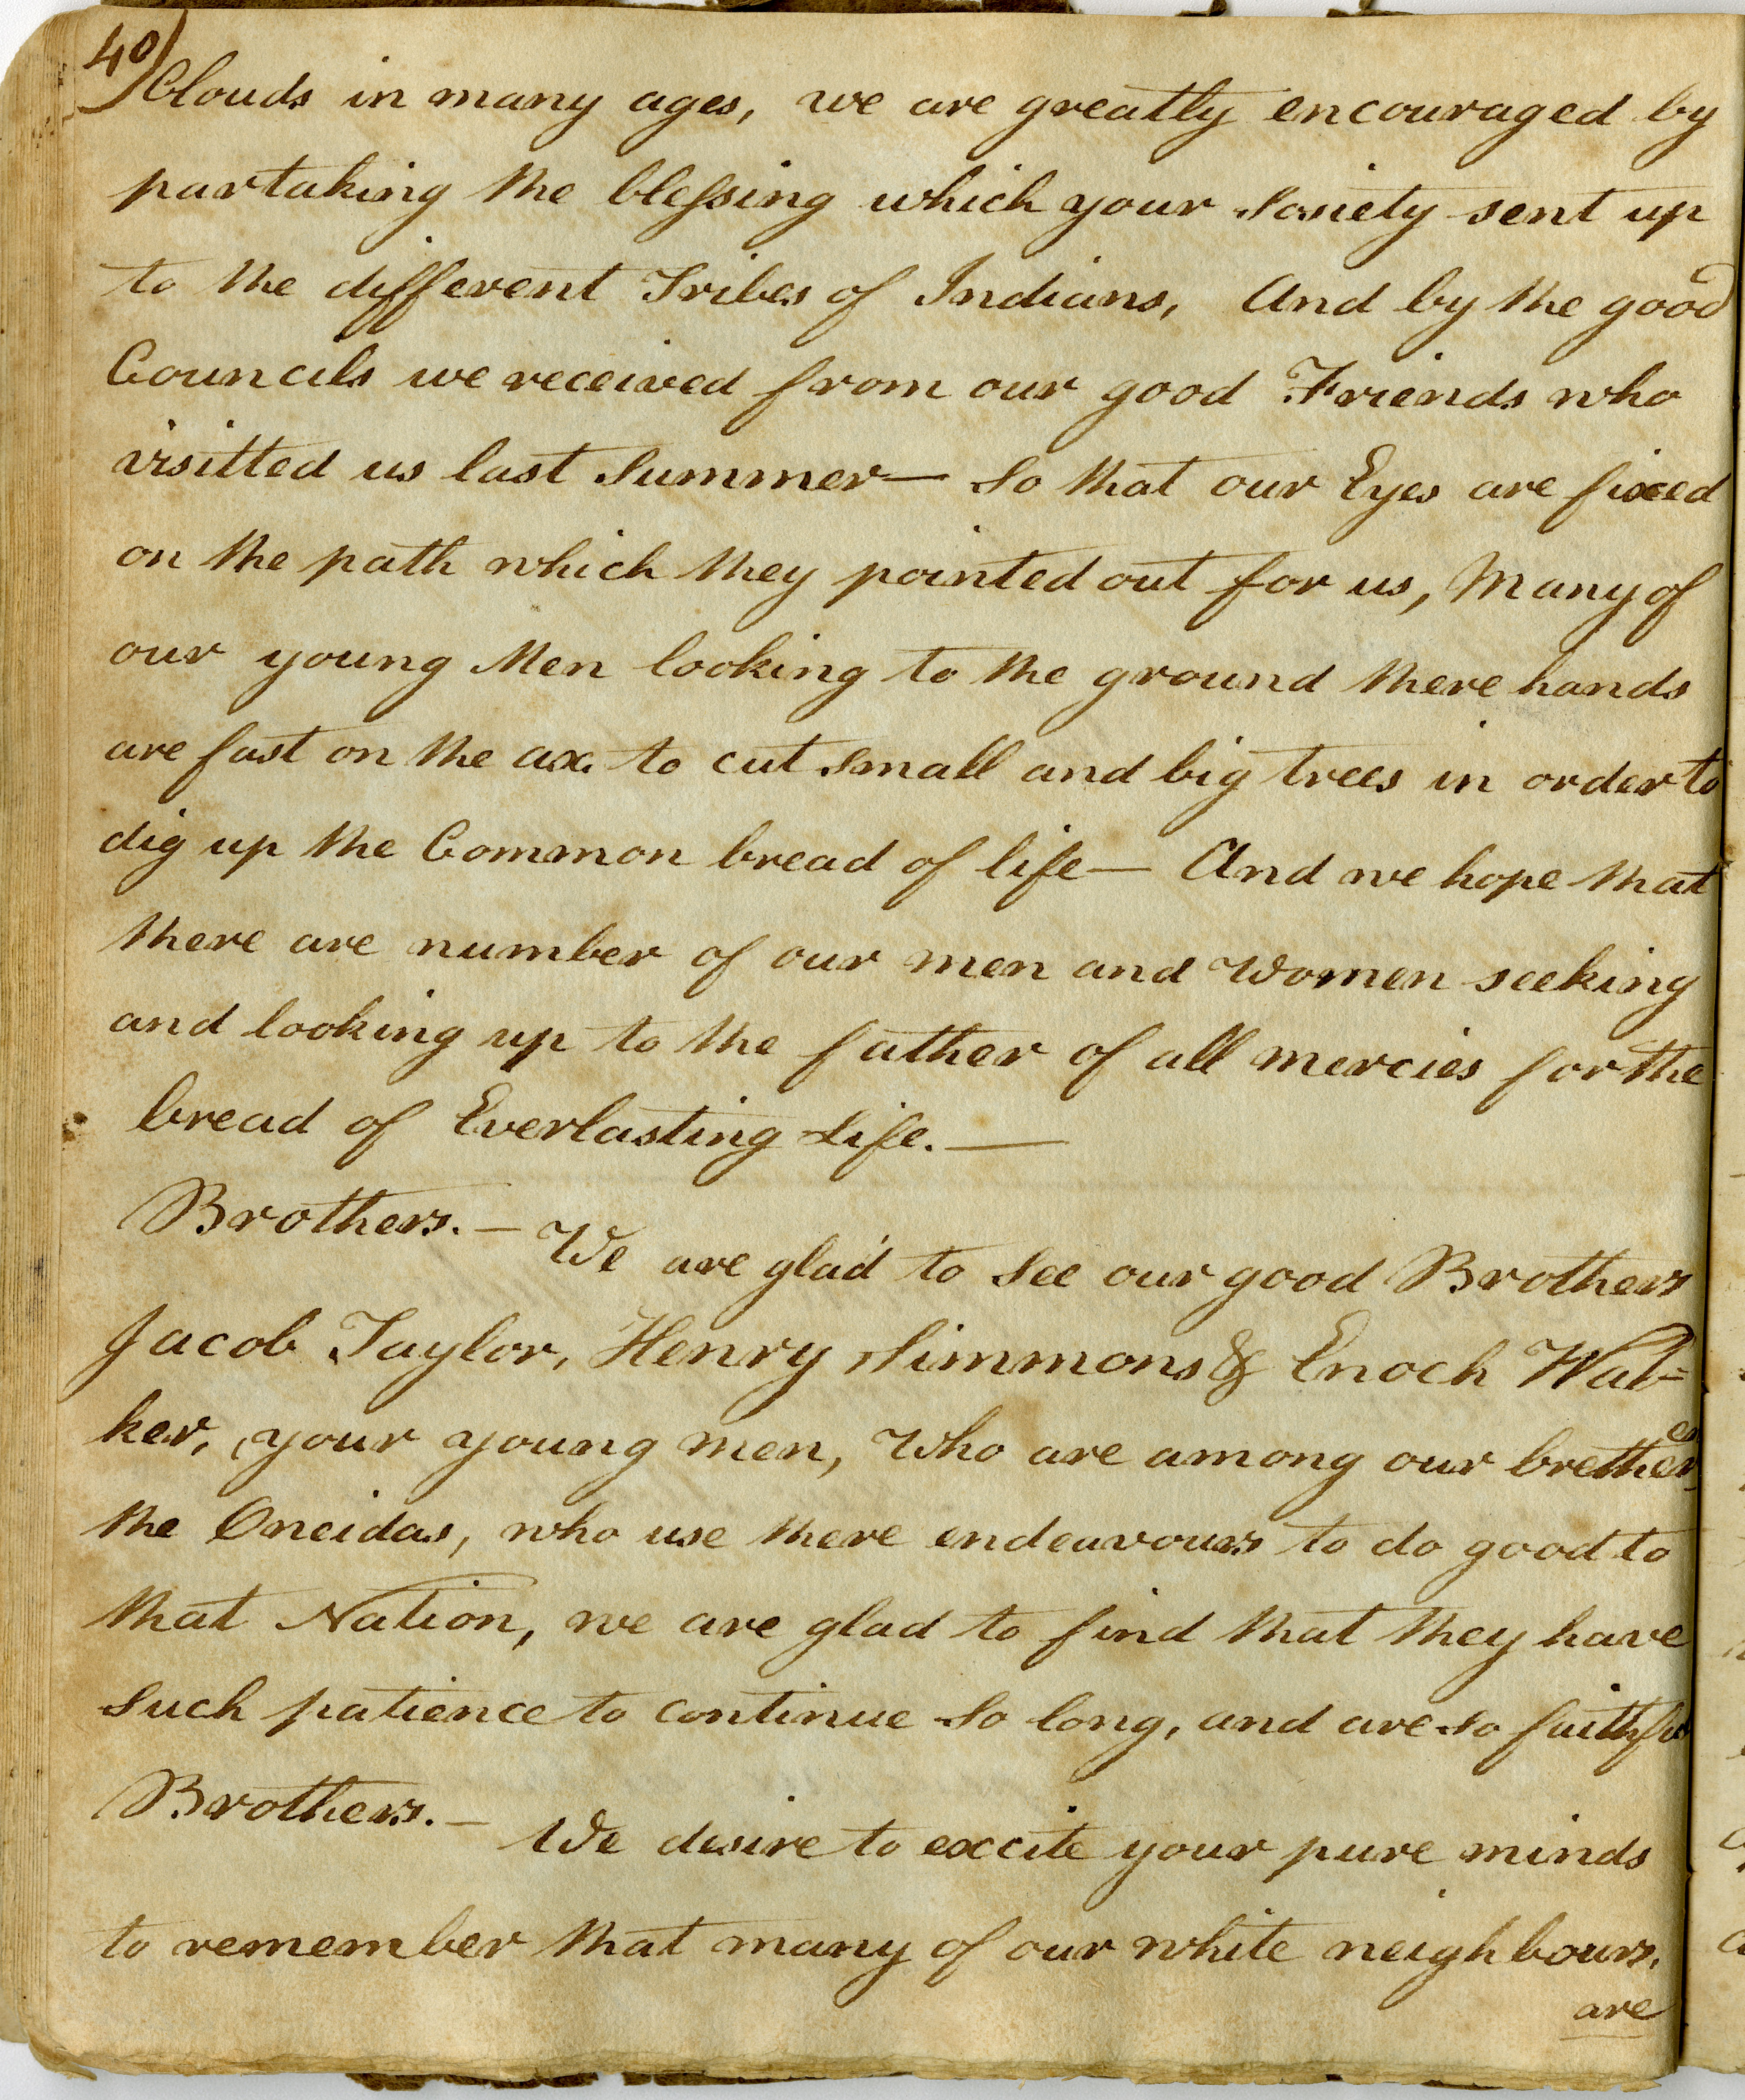 40)
Clouds in many ages, we are greatly encouraged by
partaking the blessing which your Society sent up
to the different Tribes of Indians, And by the good
Councils we received from our good Friends who
visitted us last Summer— So that our Eyes are fixed
on the path which they pointed out for us, Many of
our young Men looking to the ground there hands
are fast on the ax to cut small and big trees in order to
dig up the Common bread of life— And we hope that
there are number of our men and Women seeking
and looking up to the father of all mercies for the
bread of Everlasting Life.—
Brothers.— We are glad to see our good Brothers
Jacob Taylor, Henry Simmons & Enoch Wal=
ker, your young men, Who are among our bretheren
the Oneidas, who use there endeavours to do good to
that Nation, we are glad to find that they have
such patience to continue so long, and are so faithful
Brothers.— We desire to excite your pure minds
to remember that many of our white neighbours,
are